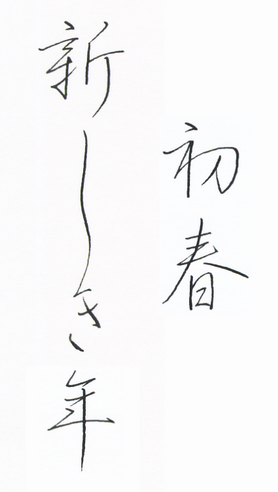 初春
新しき年